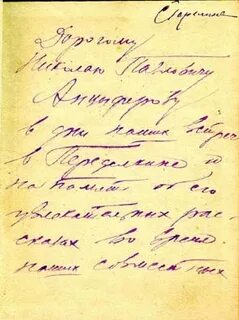 Дорогому
Николаю Павловичу
Анциферову
в дни наших встреч
в Переделкине и
на память об его
увлекательных рас-
сказах во время
наших совместных